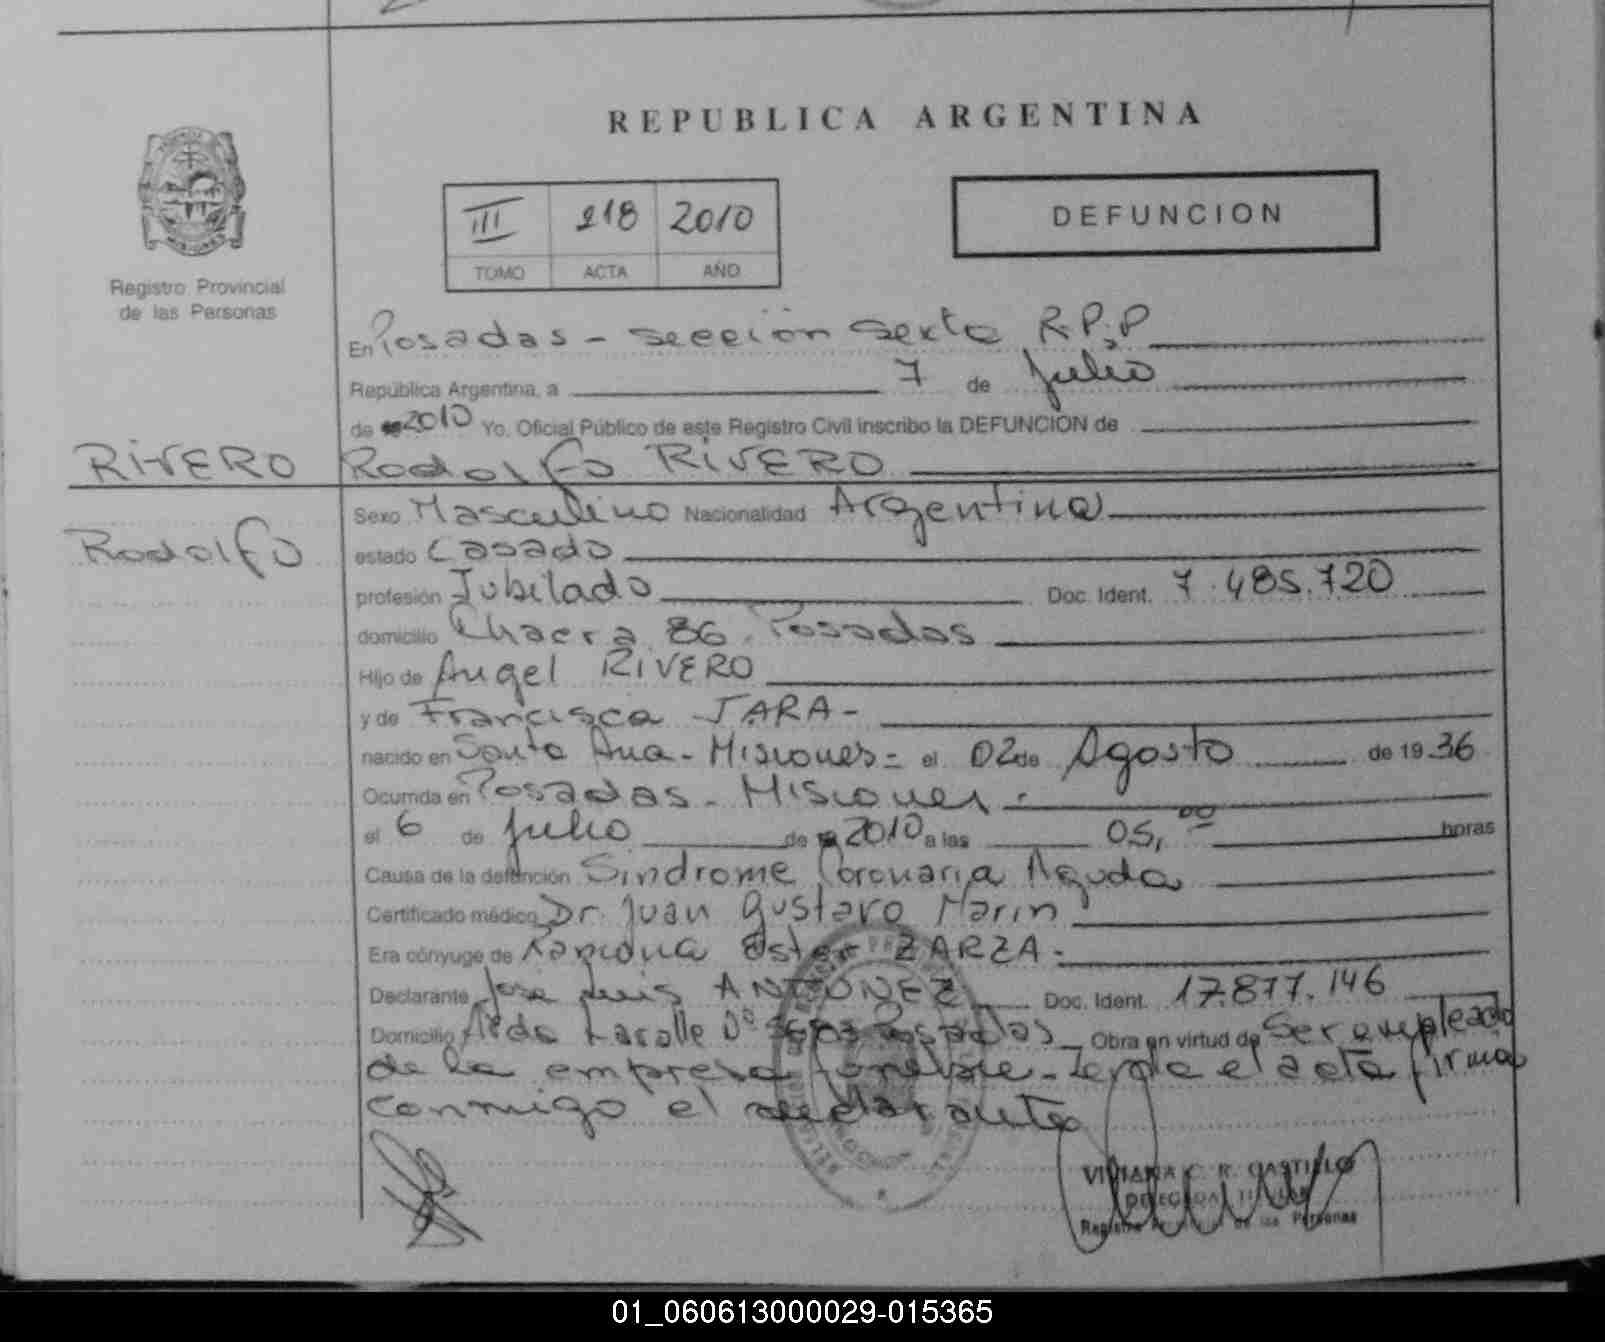 REPUBLICA ARGENTINA
III 218 2010
TOMO ACTA AÑO
DEFUNCION
Registro Provincial
de las Personas
En Posadas - Sección Sexta R.P.P
República Argentina, a 7 de Julio
de 2010 Yo, Oficial Público de este Registro Civil inscribo la DEFUNCION de
RIVERO Rodolfo RIVERO
Rodolfo
Sexo Masculino Nacionalidad Argentina
estado Casado
profesión Jubilado Doc. Ident. 7.485.720
domicilio Chacra 86. Posadas
Hijo de Angel RIVERO
y de Francisca JARA -
nacido en Santa Ana - Misiones - el 02 de Agosto de 1936
Ocurrida en Posadas - Misiones -
el 6 de Julio de 2010 a las 05,00 horas
Causa de la defunción Sindrome Coronaria Aguda
Certificado médico Dr. Juan Gustavo Marin
Era cónyuge de Ramona Ester ZARZA -
Declarante Jose Luis ANTUNEZ Doc. Ident. 17.877.146
Domicilio Avda Lasalle Nº Posadas Obra en virtud de Ser empleado
de la empresa funebre - el acta firma
conmigo el declarante
VIVIANA C. R. CASTILLO
DELEGADA TITULAR
Registro de las Personas
01_060613000029-015365